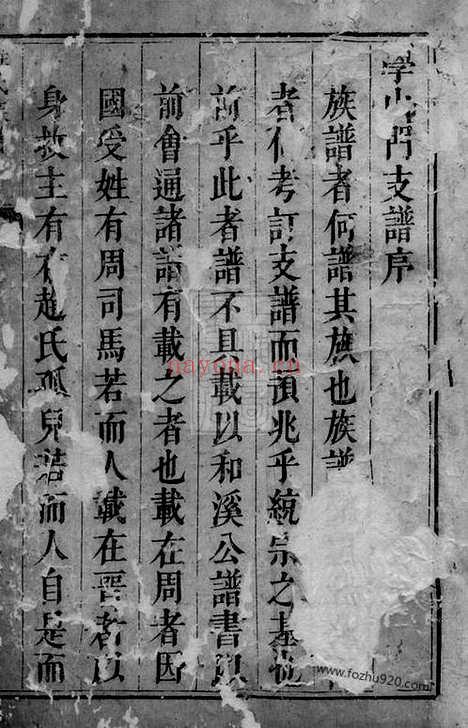 學山門支譜序
族譜者何譜其族也族譜
者何考訂支譜而預兆乎統宗之基也
前乎此者譜不具載以和溪公譜書以
前會通諸譜有載之者也載在周者因
國受姓有周司馬若而人載在晋者以
身救主有存趙氏孤兒若而人自是而
nayona.cn
www.fozhu920.com